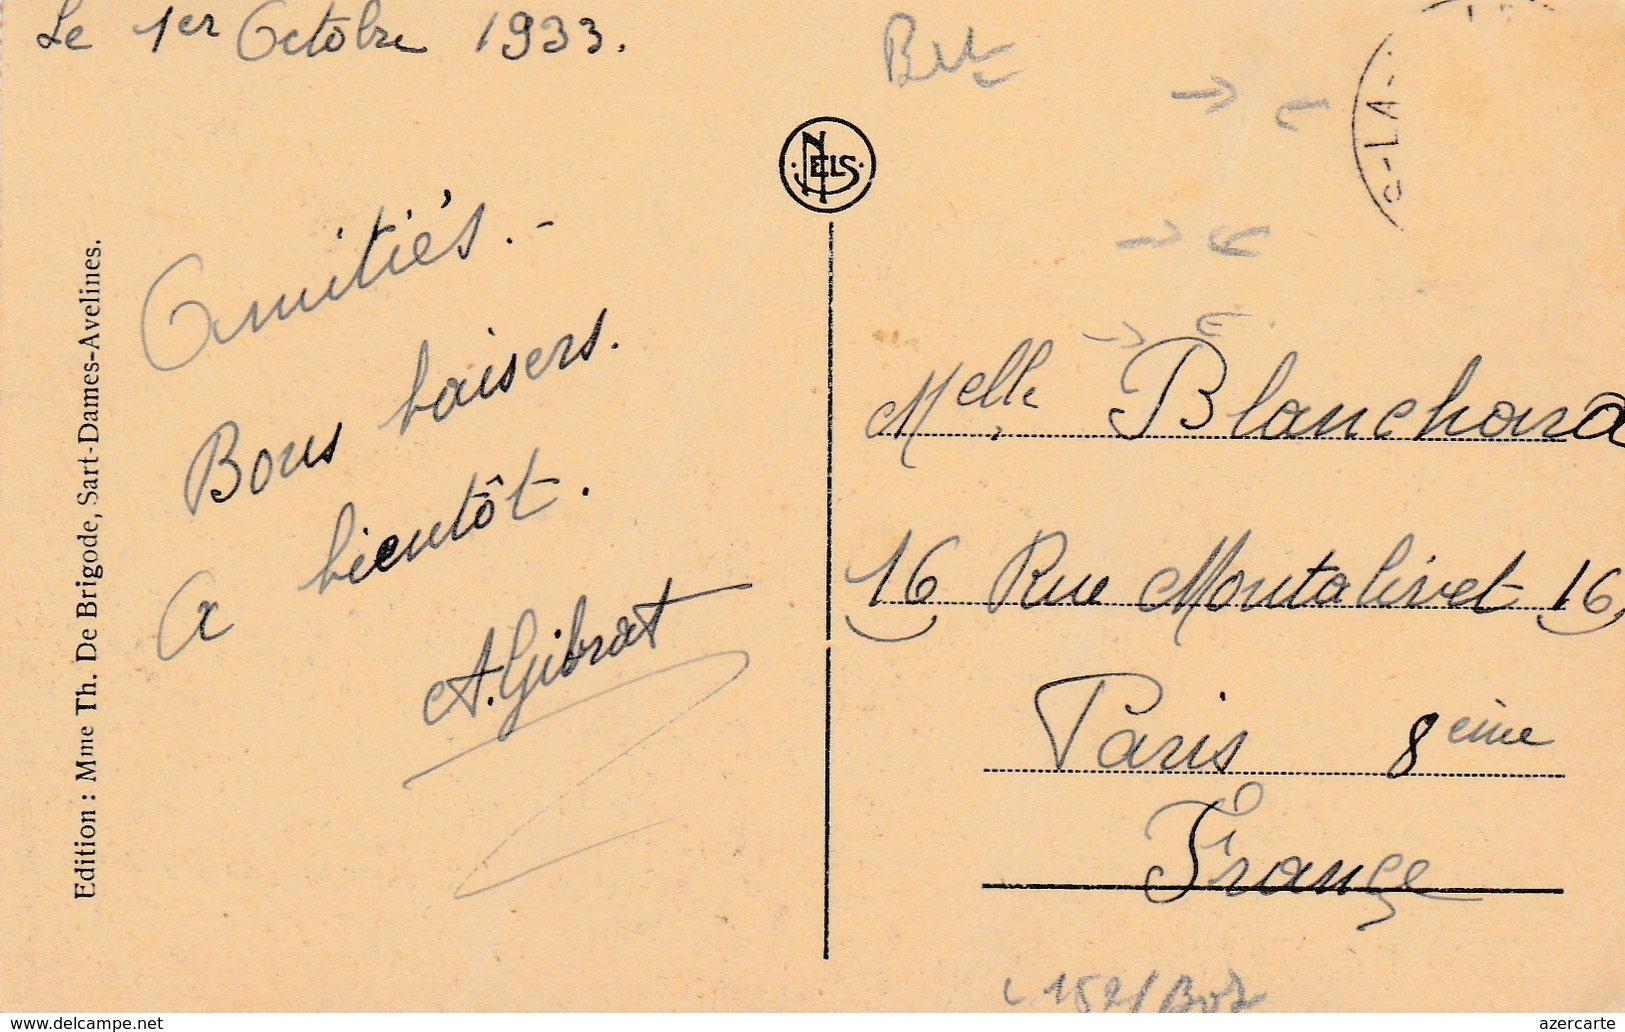 Le 1er Octobre 1933.
Amitiés.-
Bons baisers.
A bientôt.
A. Gibrat
Edition : Mme Th. De Brigode, Sart-Dames-Avelines.
NELS
-LA-
Melle Blanchard
16 Rue Montalivet 16
Paris 8eime
France
azercarte
www.delcampe.net